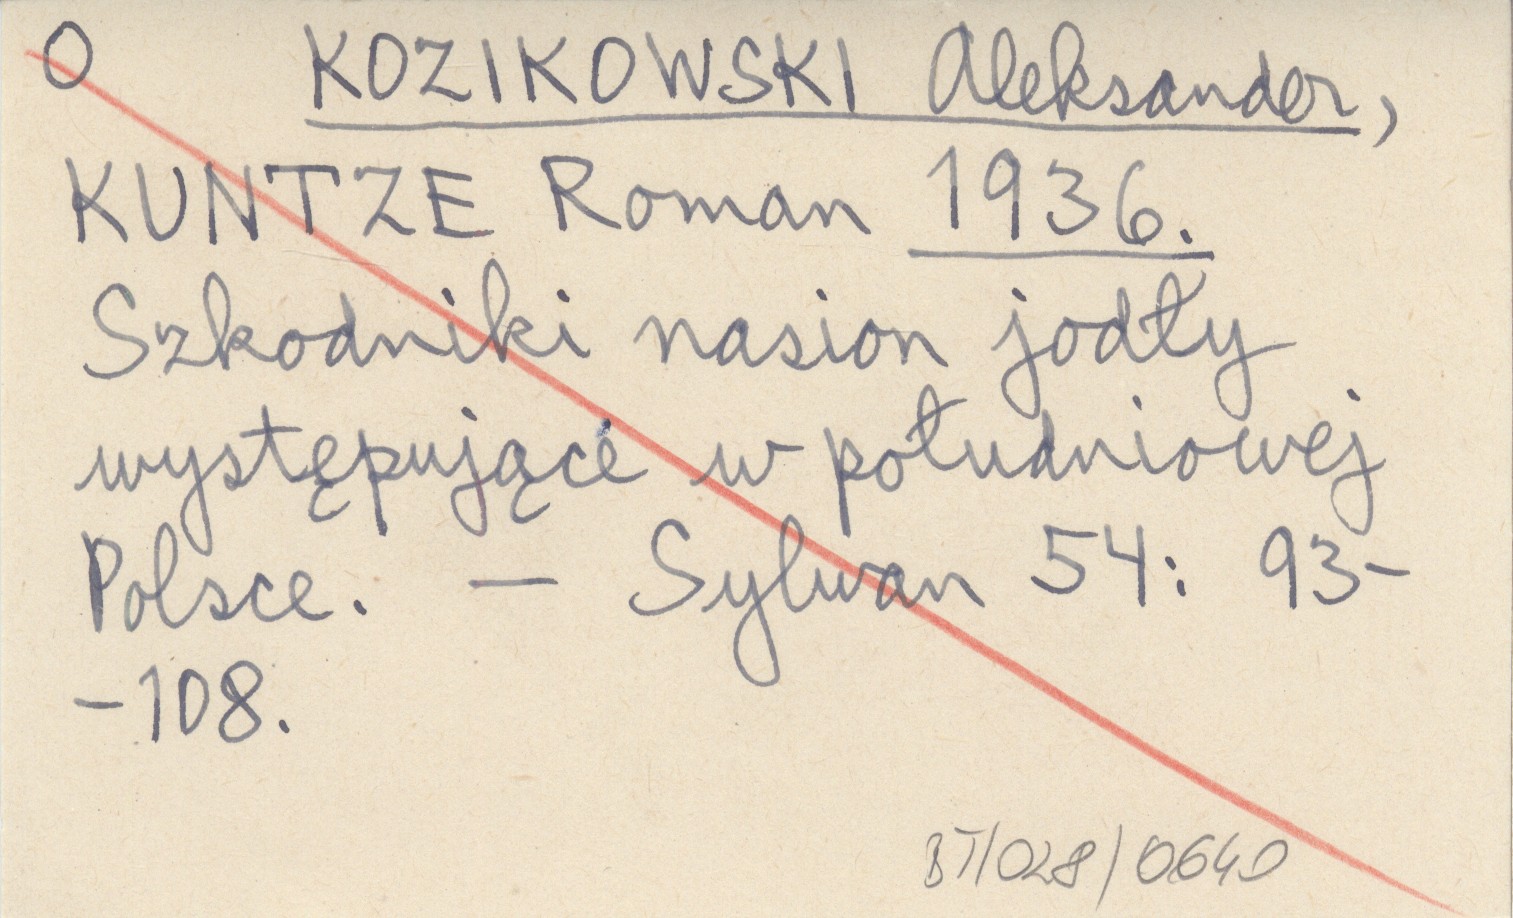 O KOZIKOWSKI Aleksander,
KUNTZE Roman 1936.
Szkodniki nasion jodły
występujące w południowej
Polsce. — Sylwan 54: 93-
-108.
BT/028/0640